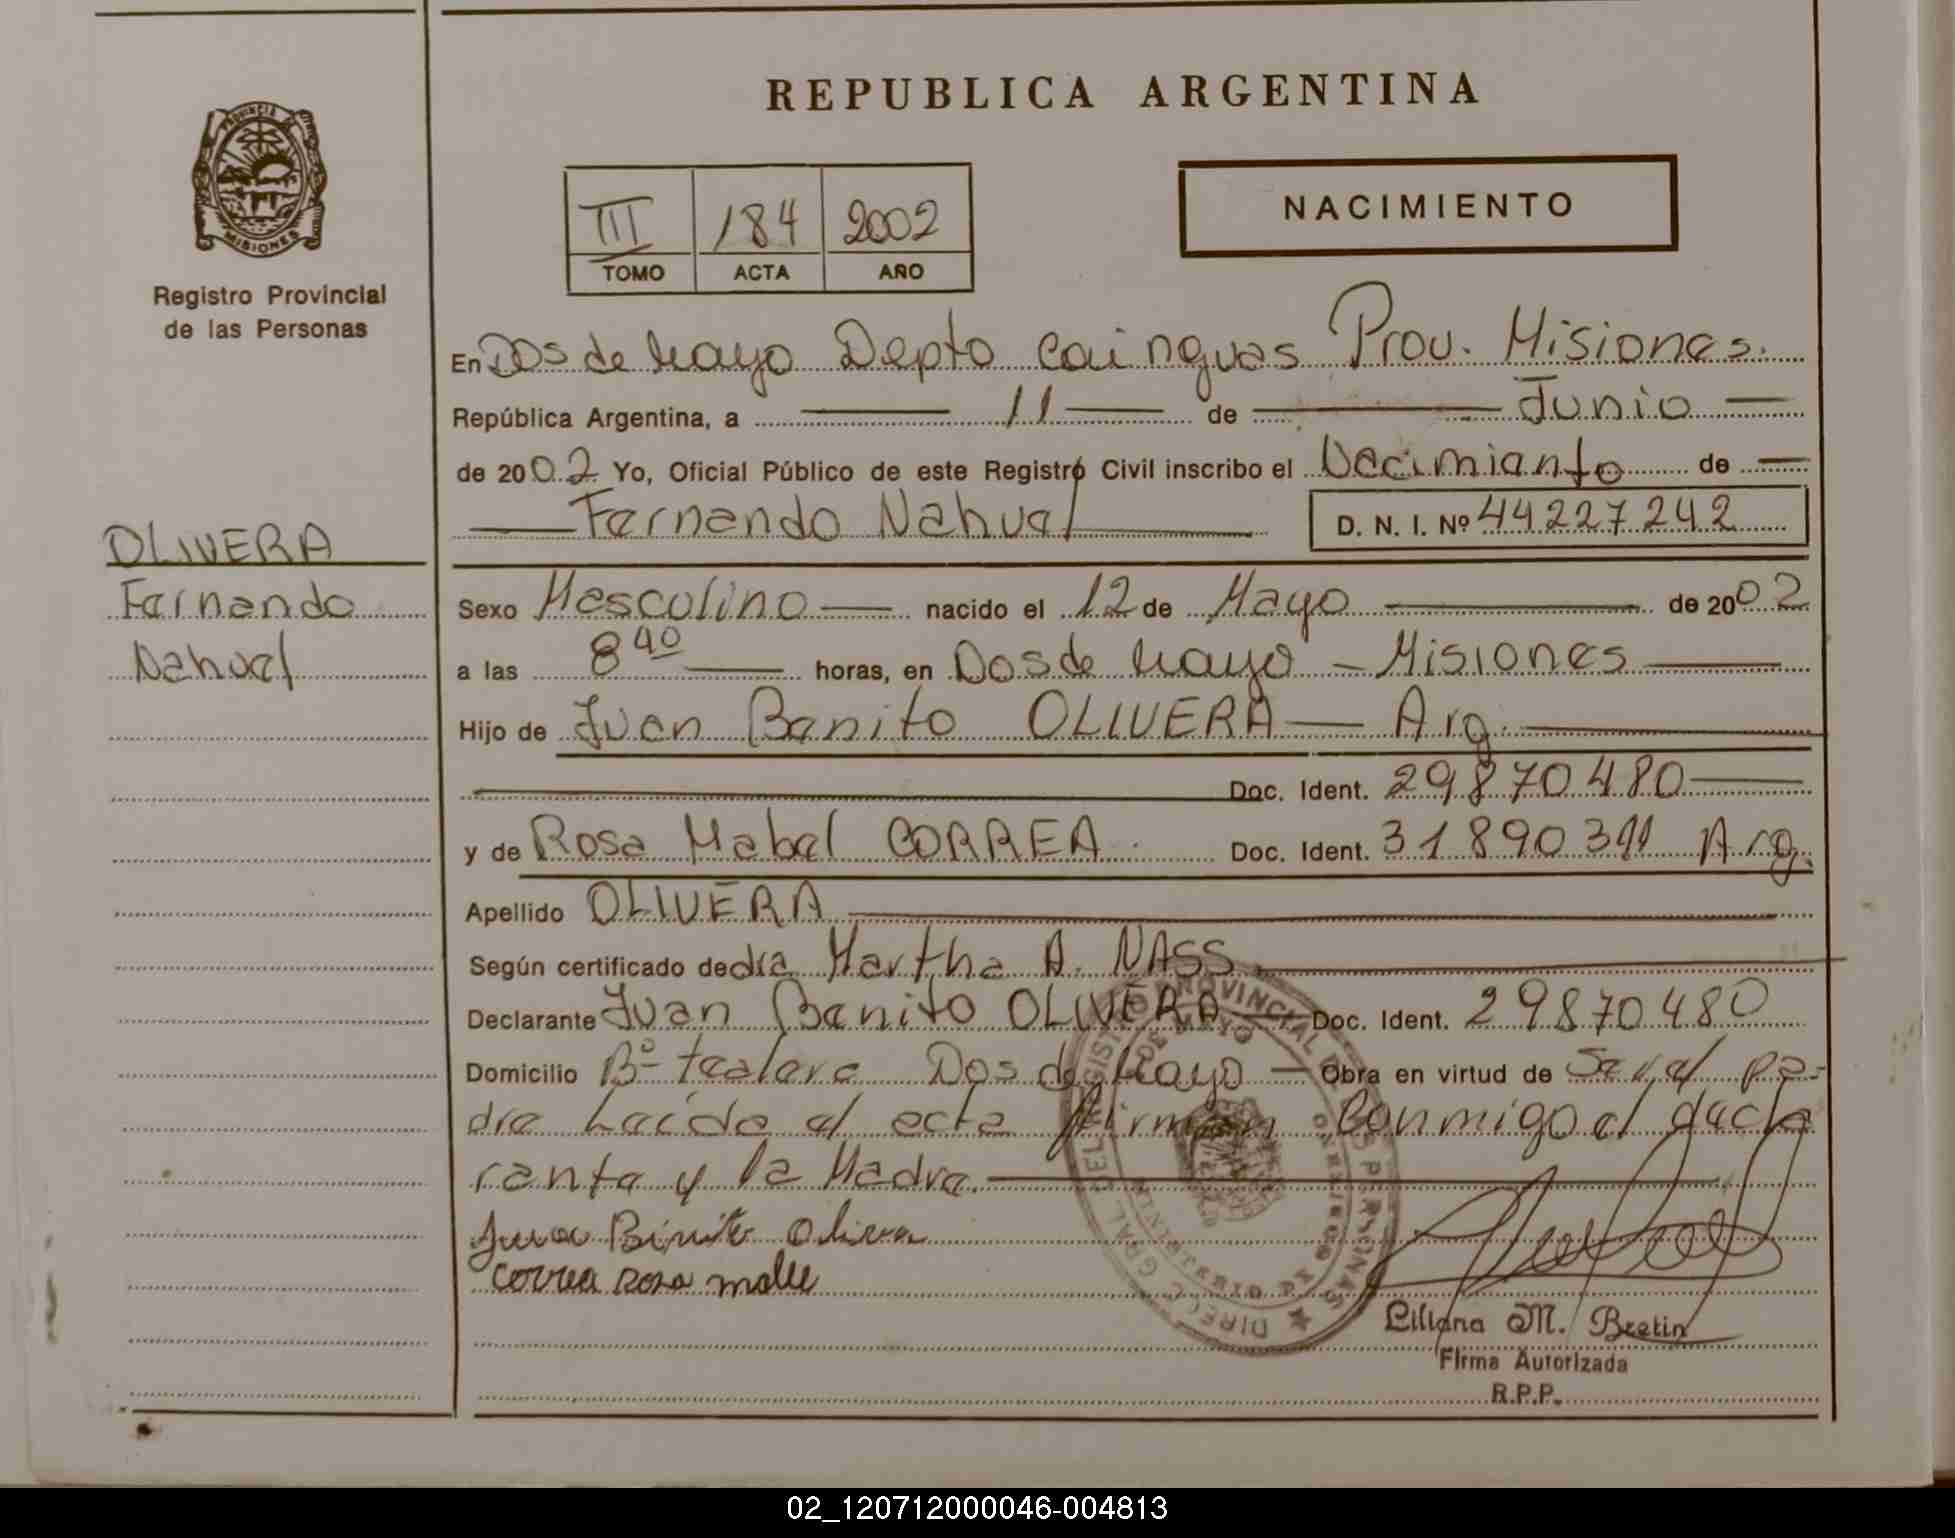 REPUBLICA ARGENTINA
PROVINCIA DE MISIONES
Registro Provincial
de las Personas
III 184 2002
TOMO ACTA AÑO
NACIMIENTO
En Dos de Mayo Depto Cainguas Prov. Misiones.
República Argentina, a 11 de Junio
de 2002 Yo, Oficial Público de este Registro Civil inscribo el Nacimiento de
Fernando Nahuel D. N. I. Nº 44227242
OLIVERA
Fernando
Nahuel
Sexo Masculino nacido el 12 de Mayo de 2002
a las 8 40 horas, en Dos de Mayo - Misiones
Hijo de Juan Benito OLIVERA Arg.
Doc. Ident. 29870480
y de Rosa Mabel CORREA. Doc. Ident. 31890311 Arg.
Apellido OLIVERA
Según certificado de dra Martha A. NASS
Declarante Juan Benito OLIVERA Doc. Ident. 29870480
Domicilio Bº tealera Dos de Mayo - Obra en virtud de Ser el pa-
dre Leída el acta firman Conmigo el decla
rante y la Madre.
Juan Binito Olivera
Correa Rosa
Liliana M. Bretin
Firma Autorizada
R.P.P.
02_120712000046-004813